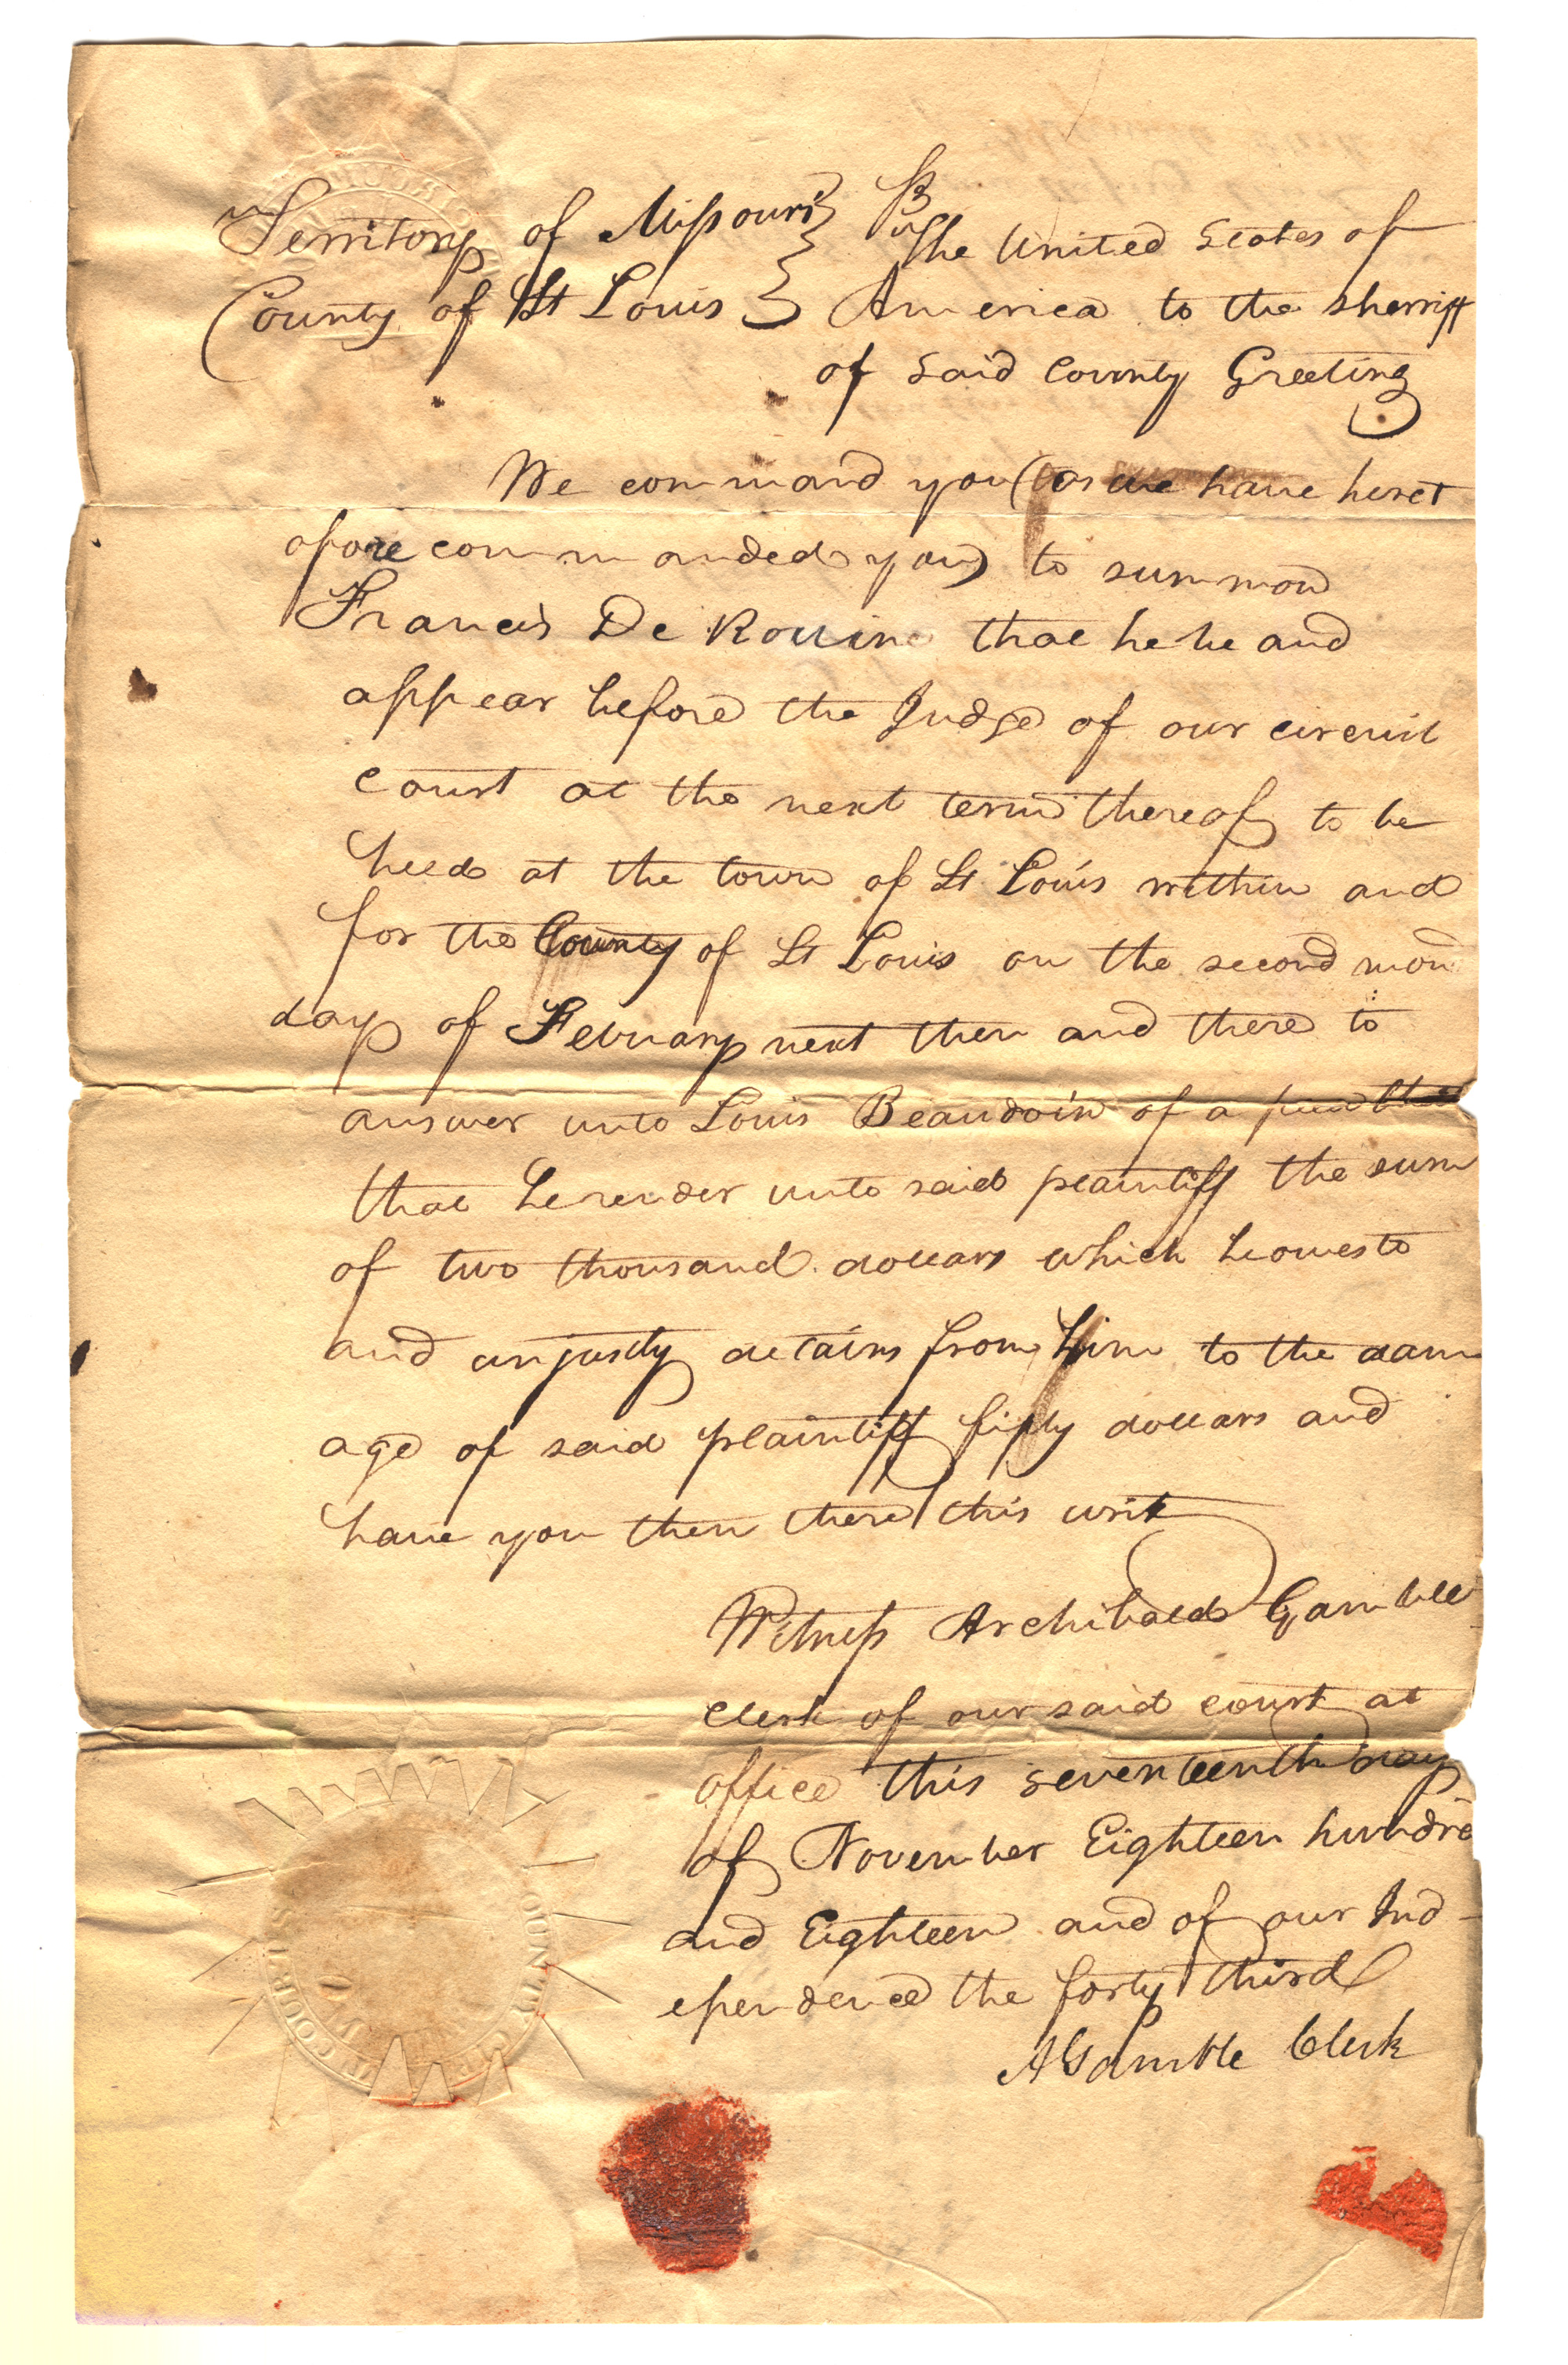 Territory of Missouri } The United States of
County of St Louis } America to the sherriff
of said County Greeting
We command you (as we have heret
ofore commanded you) to summon
Francis De Rouin that he be and
appear before the Judge of our circuit
Court at the next term thereof to be
held at the town of St Louis within and
for the County of St Louis on the second mon
day of February next then and there to
answer unto Louis Beaudoin of a plea
that he render unto said plaintiff the sum
of two thousand dollars which he owes to
and unjustly detains from him to the dam
age of said plaintiff fifty dollars and
have you then there this writ
Witness Archibald Gamble
Clerk of our said court at
office this seventeenth day
of November Eighteen hundred
and Eighteen and of our Ind
ependence the forty third
A Gamble Clerk
COUNTY CIRCUIT COURT